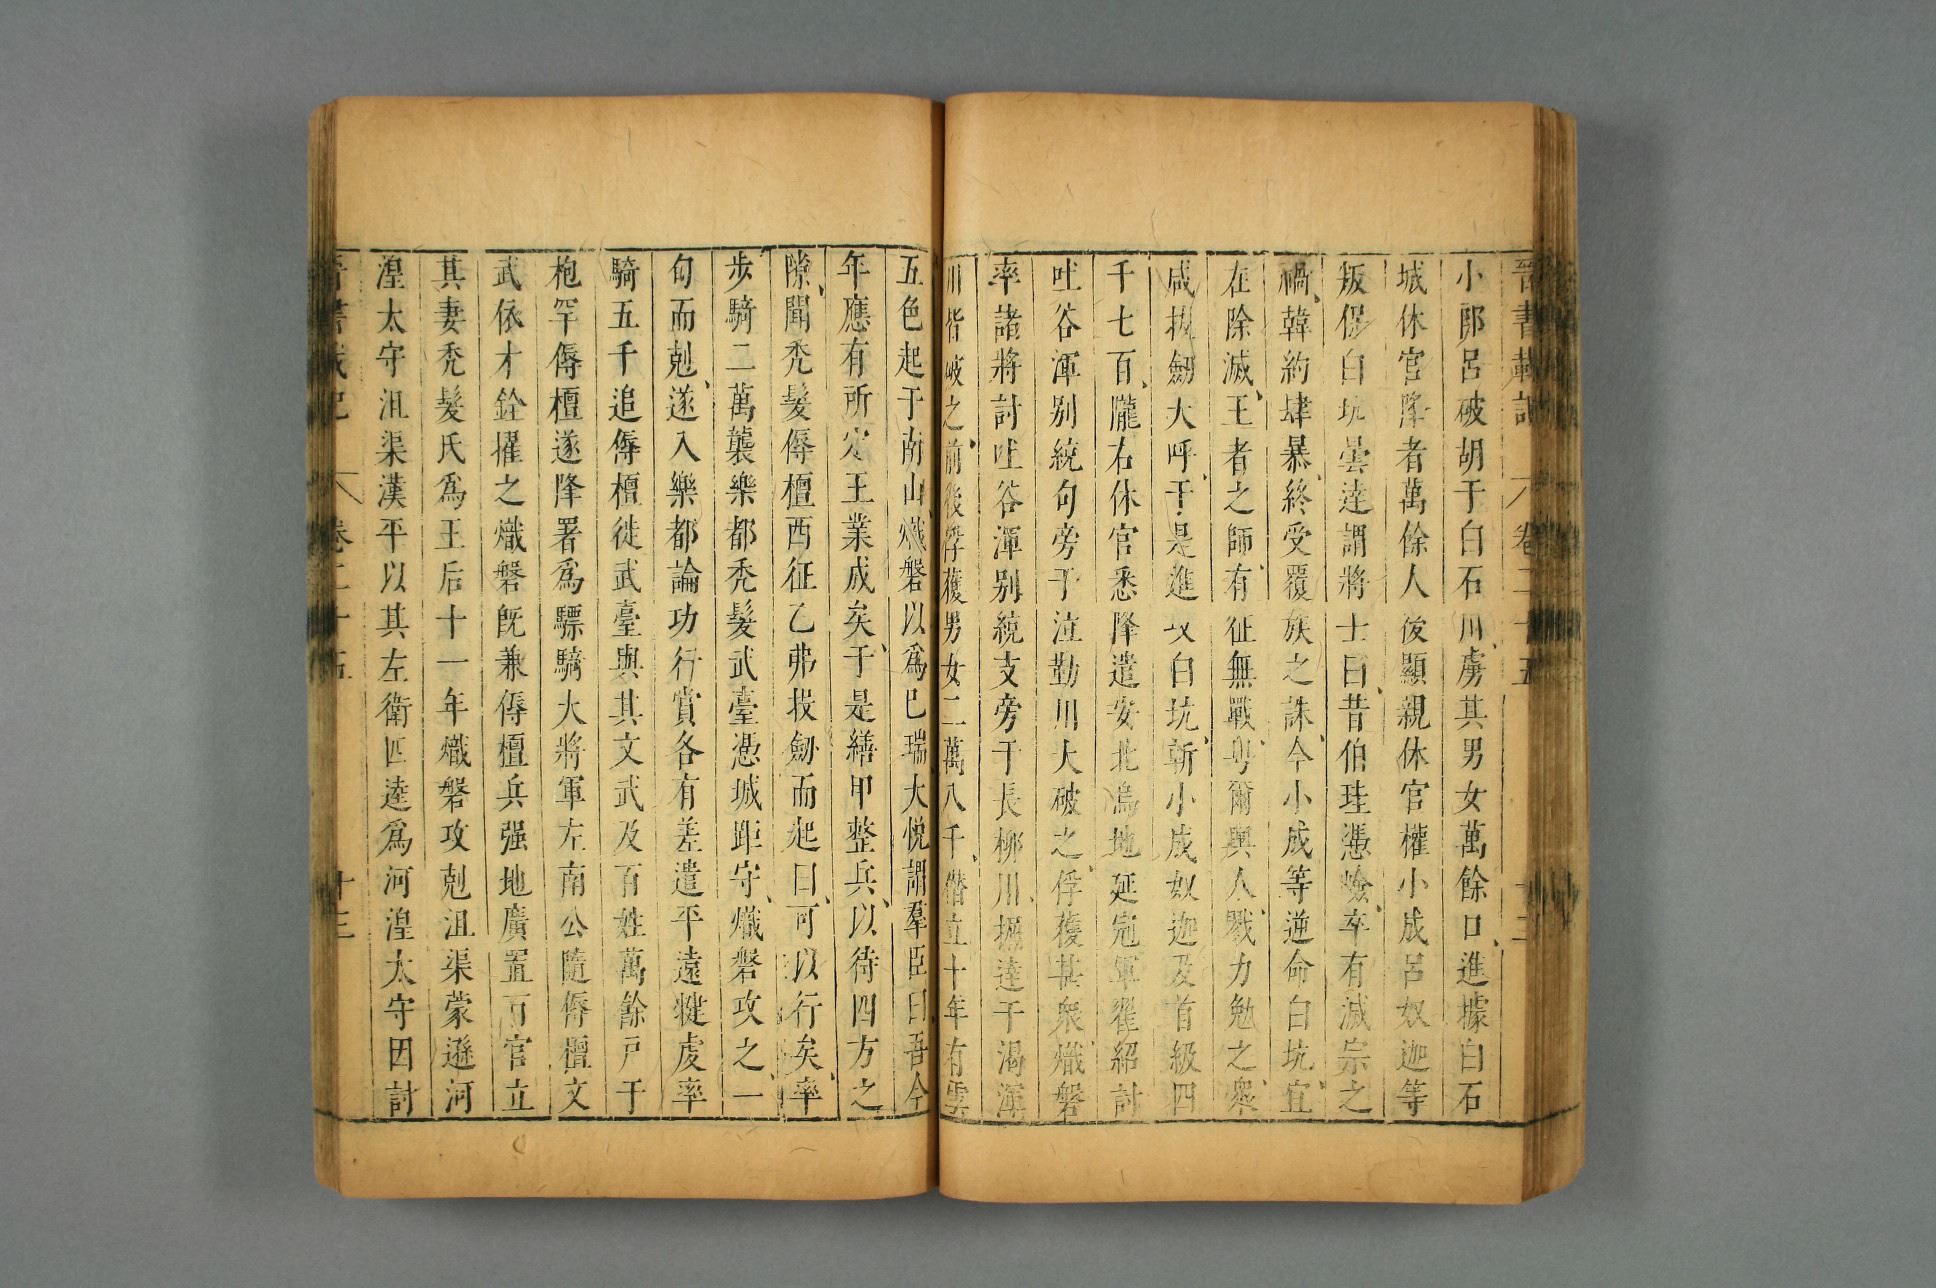 晉書載記 卷二十五 十三
小郎呂破胡于白石川虜其男女萬餘口進據白石
城休官降者萬餘人後顯親休官權小成呂奴迦等
叛保白坑曇達謂將士曰昔伯珪憑嶮卒有滅宗之
禍韓約肆暴終受覆族之誅今小成等逆命白坑宜
在除滅王者之師有征無戰粤爾輿人戮力勉之衆
咸拔劒大呼于是進攻白坑斬小成奴迦及首級四
千七百隴右休官悉降遣安北烏地延冠軍翟紹討
吐谷渾别統句旁于泣勤川大破之俘獲甚衆熾磐
率諸將討吐谷渾别統支旁于長柳川掘逵于渴渾
川皆破之前後俘獲男女二萬八千僭立十年有雲
五色起于南山熾磐以爲巳瑞大悅謂羣臣曰吾今
年應有所定王業成矣于是繕甲整兵以待四方之
隙聞禿髮傉檀西征乙弗投劒而起曰可以行矣率
步騎二萬襲樂都禿髮武臺憑城距守熾磐攻之一
旬而剋遂入樂都論功行賞各有差遣平遠犍虔率
騎五千追傉檀徙武臺與其文武及百姓萬餘戸于
枹罕傉檀遂降署爲驃騎大將軍左南公隨傉檀文
武依才銓擢之熾磐既兼傉檀兵强地廣置百官立
其妻禿髮氏爲王后十一年熾磐攻剋沮渠蒙遜河
湟太守沮渠漢平以其左衛匹逵爲河湟太守因討
晉書載記 卷二十五 十三